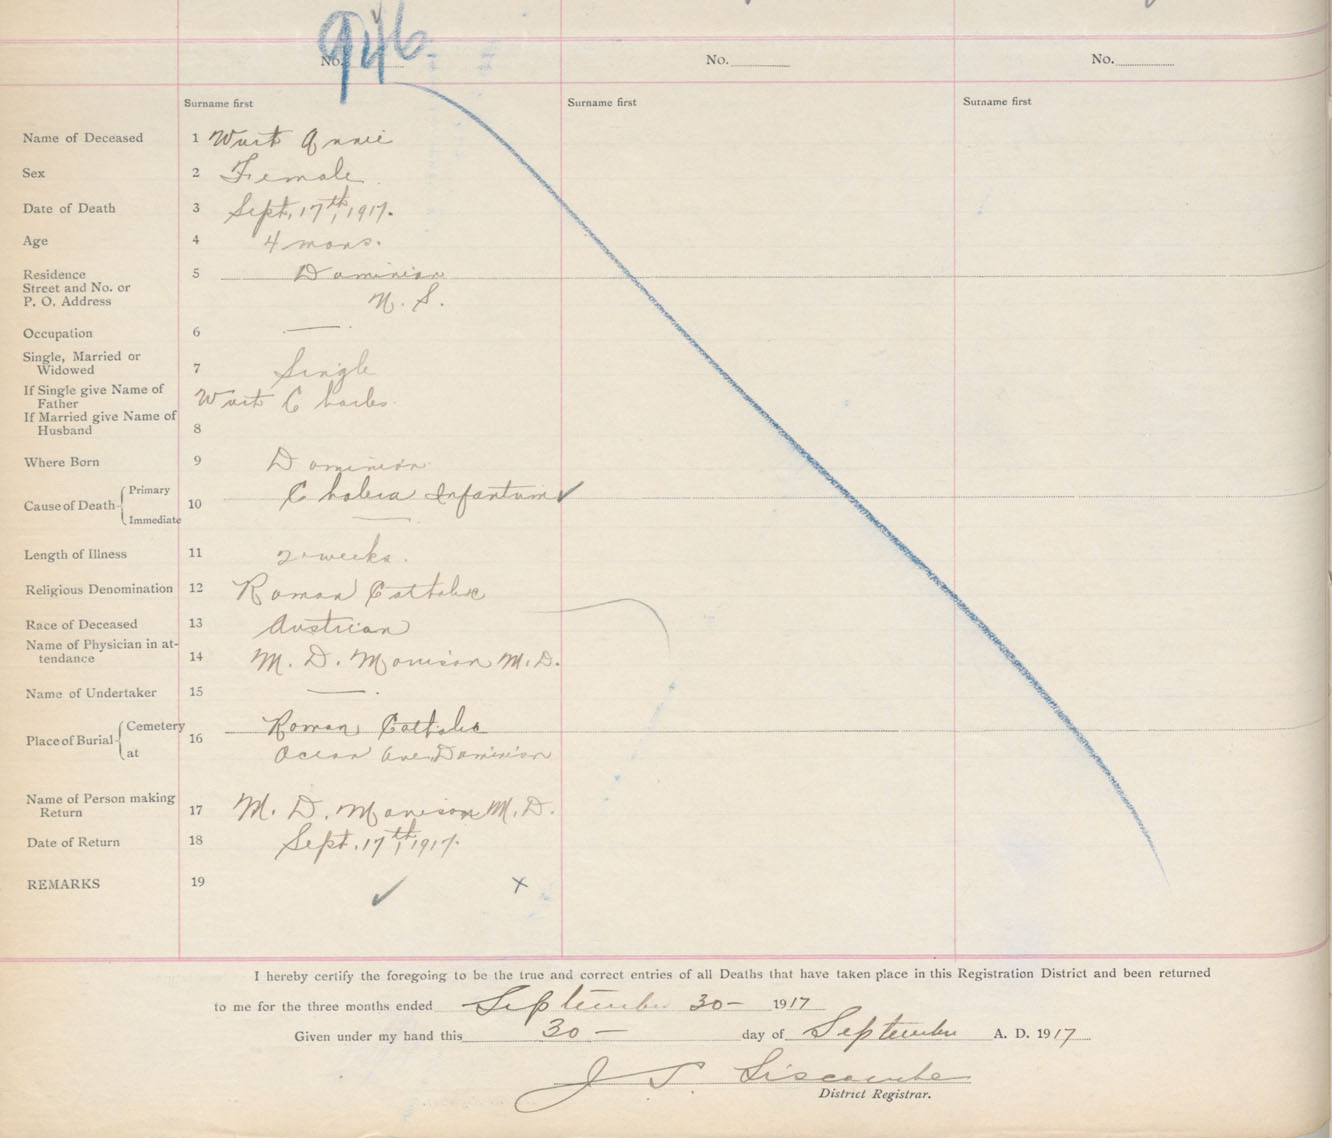 946
No.
No.
No.
Surname first
Surname first
Surname first
Name of Deceased 1 Wurt Annie
Sex 2 Female
Date of Death 3 Sept, 17th, 1917.
Age 4 4 mons.
Residence 5 Dominion
Street and No. or
P. O. Address N. S.
Occupation 6 —
Single, Married or
Widowed 7 Single
If Single give Name of
Father Wurt Charles
If Married give Name of
Husband 8
Where Born 9 Dominion
Cause of Death Primary 10 Cholera Infantum ✓
Immediate —
Length of Illness 11 2 weeks.
Religious Denomination 12 Roman Catholic
Race of Deceased 13 Austrian
Name of Physician in at-
tendance 14 M. D. Morrison M.D.
Name of Undertaker 15 —
Place of Burial Cemetery 16 Roman Catholic
at Ocean Ave. Dominion
Name of Person making
Return 17 M. D. Morrison M.D.
Date of Return 18 Sept. 17th, 1917.
REMARKS 19 ✓ x
I hereby certify the foregoing to be the true and correct entries of all Deaths that have taken place in this Registration District and been returned
to me for the three months ended September 30 — 1917
Given under my hand this 30 — day of September A. D. 1917
J S. Liscombe
District Registrar.